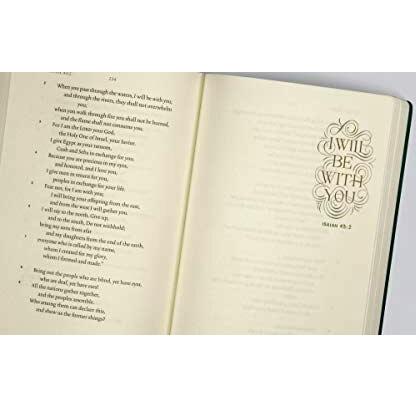 234
When you pass through the waters, I will be with you;
and through the rivers, they shall not overwhelm
you;
when you walk through fire you shall not be burned,
and the flame shall not consume you.
For I am the LORD your God,
the Holy One of Israel, your Savior.
I give Egypt as your ransom,
Cush and Seba in exchange for you.
Because you are precious in my eyes,
and honored, and I love you,
I give men in return for you,
peoples in exchange for your life.
Fear not, for I am with you;
I will bring your offspring from the east,
and from the west I will gather you.
I will say to the north, Give up,
and to the south, Do not withhold;
bring my sons from afar
and my daughters from the end of the earth,
everyone who is called by my name,
whom I created for my glory,
whom I formed and made."
Bring out the people who are blind, yet have eyes,
who are deaf, yet have ears!
All the nations gather together,
and the peoples assemble.
Who among them can declare this,
and show us the former things?
I WILL
BE
WITH
YOU
ISAIAH 43:2